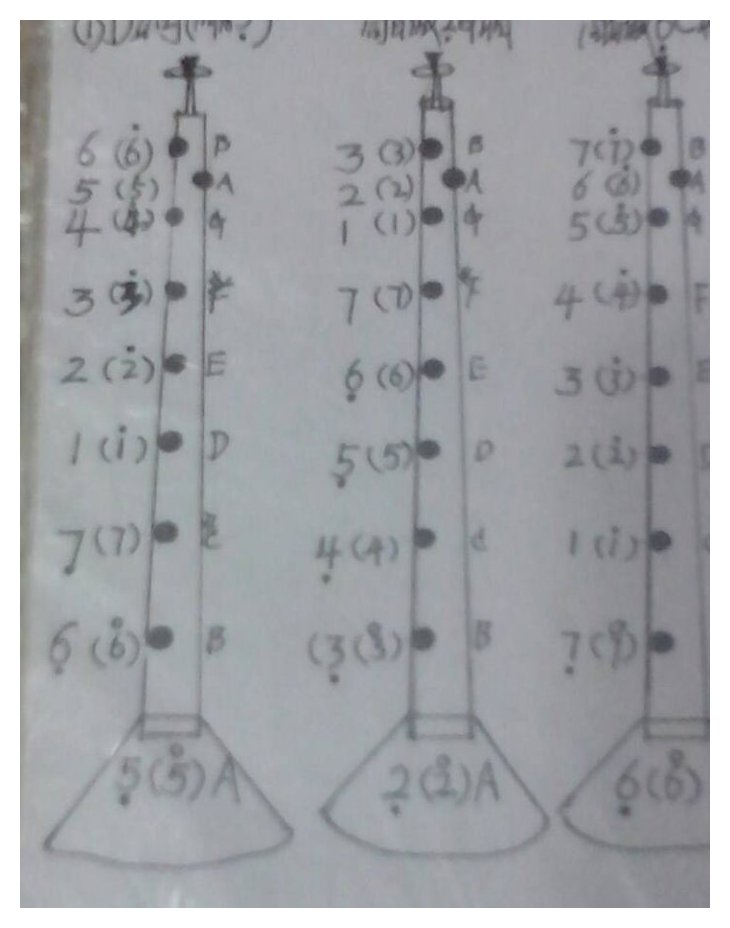 6 (6̇) B
5 (5̇) A
4 (4̇) G
3 (3̇) #F
2 (2̇) E
1 (1̇) D
7̣ (7) #C
6̣ (6̊) B
5̣ (5̊) A
3 (3) B
2 (2) A
1 (1) G
7 (7) #F
6̣ (6) E
5̣ (5) D
4̣ (4) C
(3̣ (3̊) B
2̣ (2̊) A
7 (7̇) B
6 (6̇) A
5 (5̇) G
4 (4̇) F
3 (3̇) E
2 (2̇)
1 (1̇)
7̣ (7̊)
6̣ (6̊)